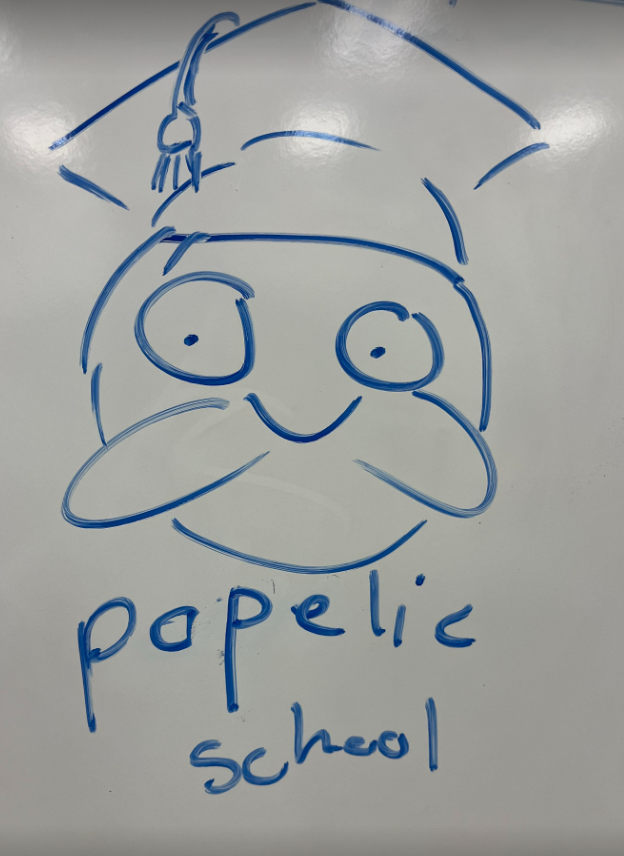 popelic
school